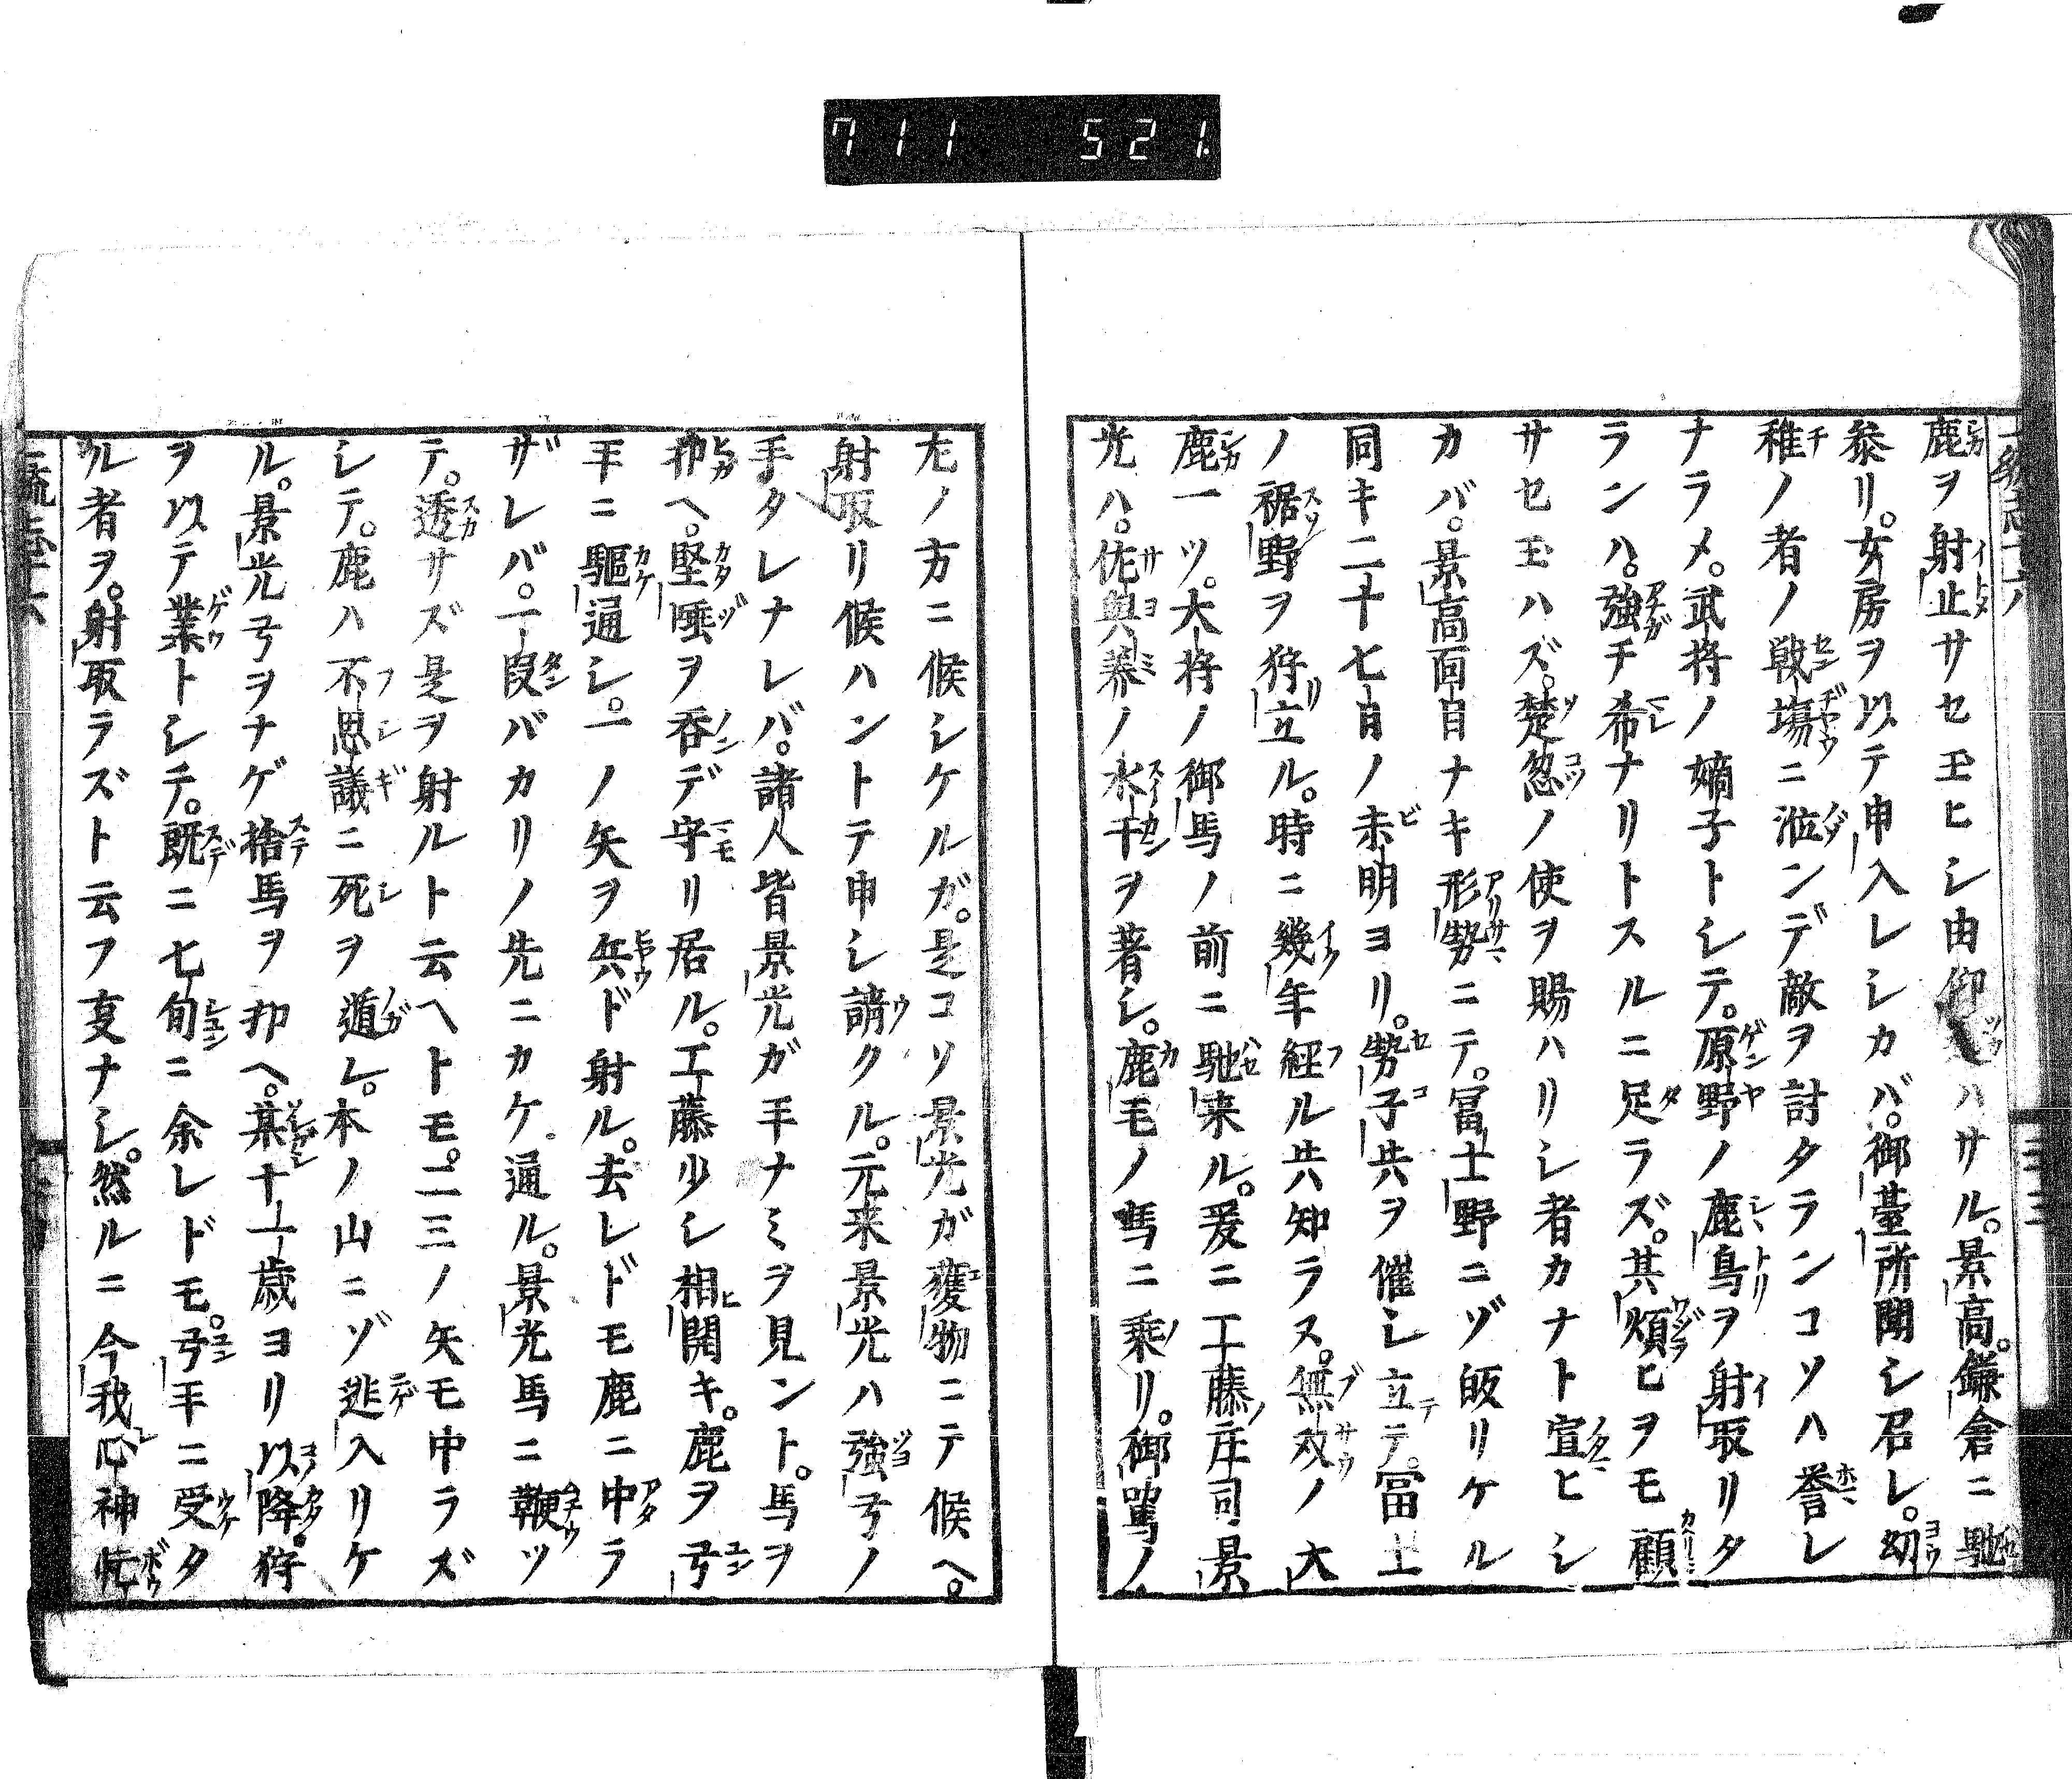 711 521
鹿ヲ射止サセ玉ヒシ由仰ツハサル。景高。鎌倉ニ馳
参リ。女房ヲ以テ申入レシカバ。御臺所聞シ召レ。幼
稚ノ者ノ戦塲ニ涖ンデ敵ヲ討タランコソハ誉レ
ナラメ。武将ノ嫡子トシテ。原野ノ鹿鳥ヲ射取リタ
ランハ。強チ希ナリトスルニ足ラズ。其煩ヒヲモ顧
サセ玉ハズ。楚忽ノ使ヲ賜ハリシ者カナト宣ヒシ
カバ。景高面目ナキ形勢ニテ。冨士野ニゾ皈リケル
同キ二十七日ノ未明ヨリ。勢子共ヲ催シ立テ。冨士
ノ裾野ヲ狩立ル。時ニ幾年経ル共知ラス。無双ノ大
鹿一ツ。大将ノ御馬ノ前ニ馳来ル。爰ニ工藤庄司景
光ハ。作與美ノ水干ヲ著シ。鹿毛ノ馬ニ乗リ。御駕ノ
左ノ方ニ候シケルガ。是コソ景光ガ獲物ニテ候ヘ。
射取リ候ハントテ申シ請クル。元来景光ハ強弓ノ
手タレナレバ。諸人皆景光ガ手ナミヲ見ント。馬ヲ
扣ヘ。堅唾ヲ呑デ守リ居ル。工藤少シ相開キ。鹿ヲ弓
手ニ駆通シ。一ノ矢ヲ兵ド射ル。去レドモ鹿ニ中ラ
ザレバ。一段バカリノ先ニカケ通ル。景光馬ニ鞭ツ
テ。透サズ是ヲ射ルト云ヘトモ。二三ノ矢モ中ラズ
シテ。鹿ハ不思議ニ死ヲ遁レ。本ノ山ニゾ逃入リケ
ル。景光弓ヲナゲ捨馬ヲ扣ヘ。某十一歳ヨリ以降。狩
ヲ以テ業トシテ。既ニ七旬ニ余レドモ。弓手ニ受タ
ル者ヲ。射取ラズト云フ㕝ナシ。然ルニ今我心神忙